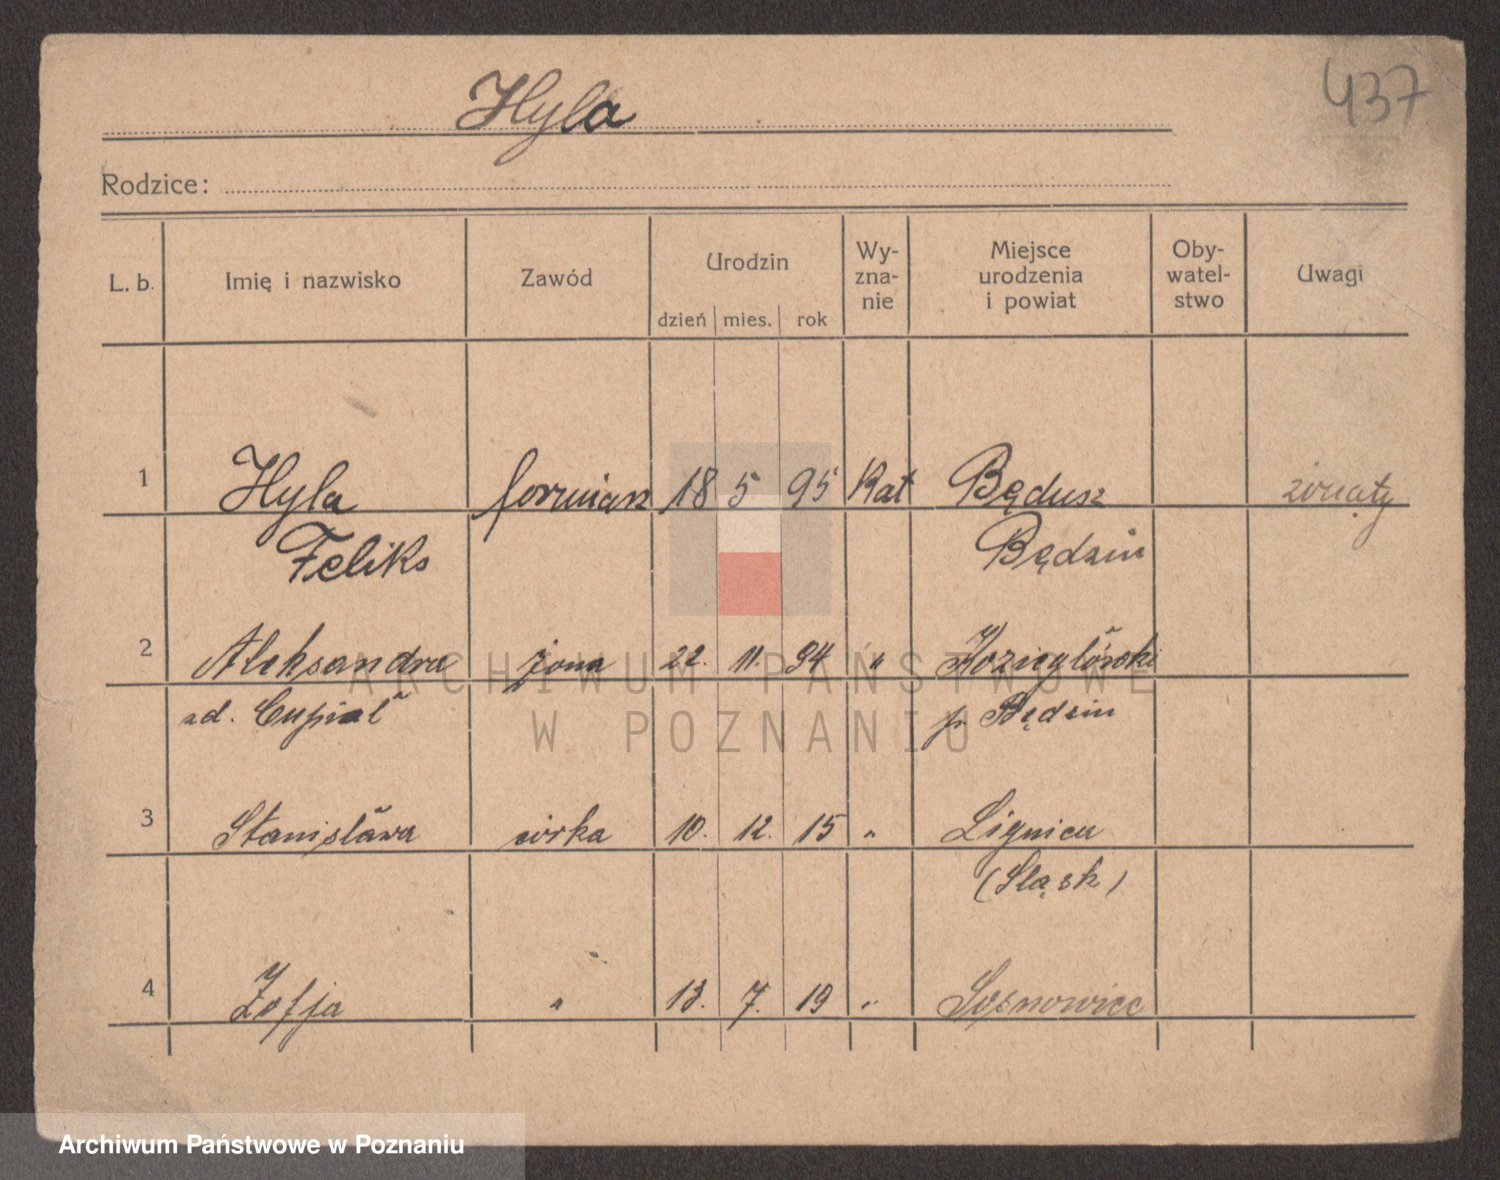 Hyla
437
Rodzice:
L. b. Imię i nazwisko Zawód Urodzin dzień mies. rok Wy-zna-nie Miejsce urodzenia i powiat Oby-watel-stwo Uwagi
1 Hyla formiarz 18 5 95 Kat Będusz żonaty
Feliks Będzin
2 Aleksandra żona 22. 11. 94 "
zd. Cupiał p. Będzin
3 Stanisława córka 10. 12. 15 " Lignica
(Śląsk)
4 Zofja " 13. 7. 19 " Sosnowiec
ARCHIWUM PAŃSTWOWE
W POZNANIU
Archiwum Państwowe w Poznaniu